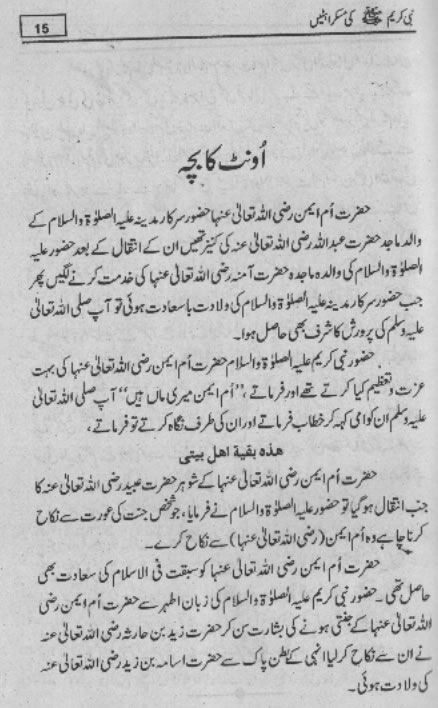 نبی کریم ﷺ کی مسکراہٹیں
15
اُونٹ کا بچہ
حضرت اُم ایمن رضی اللہ تعالیٰ عنہا حضور سرکار مدینہ علیہ الصلوٰۃ والسلام کے
والد ماجد حضرت عبداللہ رضی اللہ تعالیٰ عنہ کی کنیز تھیں ان کے انتقال کے بعد حضور علیہ
الصلوٰۃ والسلام کی والدہ ماجدہ حضرت آمنہ رضی اللہ تعالیٰ عنہا کی خدمت کرنے لگیں پھر
جب حضور سرکار مدینہ علیہ الصلوٰۃ والسلام کی ولادت باسعادت ہوئی تو آپ صلی اللہ تعالیٰ
علیہ وسلم کی پرورش کا شرف بھی حاصل ہوا۔
حضور نبی کریم علیہ الصلوٰۃ والسلام حضرت اُم ایمن رضی اللہ تعالیٰ عنہا کی بہت
عزت و تعظیم کیا کرتے تھے اور فرماتے، ”اُم ایمن میری ماں ہیں“ آپ صلی اللہ تعالیٰ
علیہ وسلم ان کو امی کہہ کر خطاب فرماتے اور ان کی طرف نگاہ کرتے تو فرماتے،
هذه بقية اهل بيتى
حضرت اُم ایمن رضی اللہ تعالیٰ عنہا کے شوہر حضرت عبید رضی اللہ تعالیٰ عنہ کا
جب انتقال ہو گیا تو حضور علیہ الصلوٰۃ والسلام نے فرمایا، جو شخص جنت کی عورت سے نکاح
کرنا چاہے وہ اُم ایمن (رضی اللہ تعالیٰ عنہا) سے نکاح کرے۔
حضرت اُم ایمن رضی اللہ تعالیٰ عنہا کو سبقت فی الاسلام کی سعادت بھی
حاصل تھی۔ حضور نبی کریم علیہ الصلوٰۃ والسلام کی زبان اطہر سے حضرت اُم ایمن رضی
اللہ تعالیٰ عنہا کے جنتی ہونے کی بشارت سن کر حضرت زید بن حارثہ رضی اللہ تعالیٰ عنہ
نے ان سے نکاح کر لیا انہی کے بطن پاک سے حضرت اسامہ بن زید رضی اللہ تعالیٰ عنہ
کی ولادت ہوئی۔